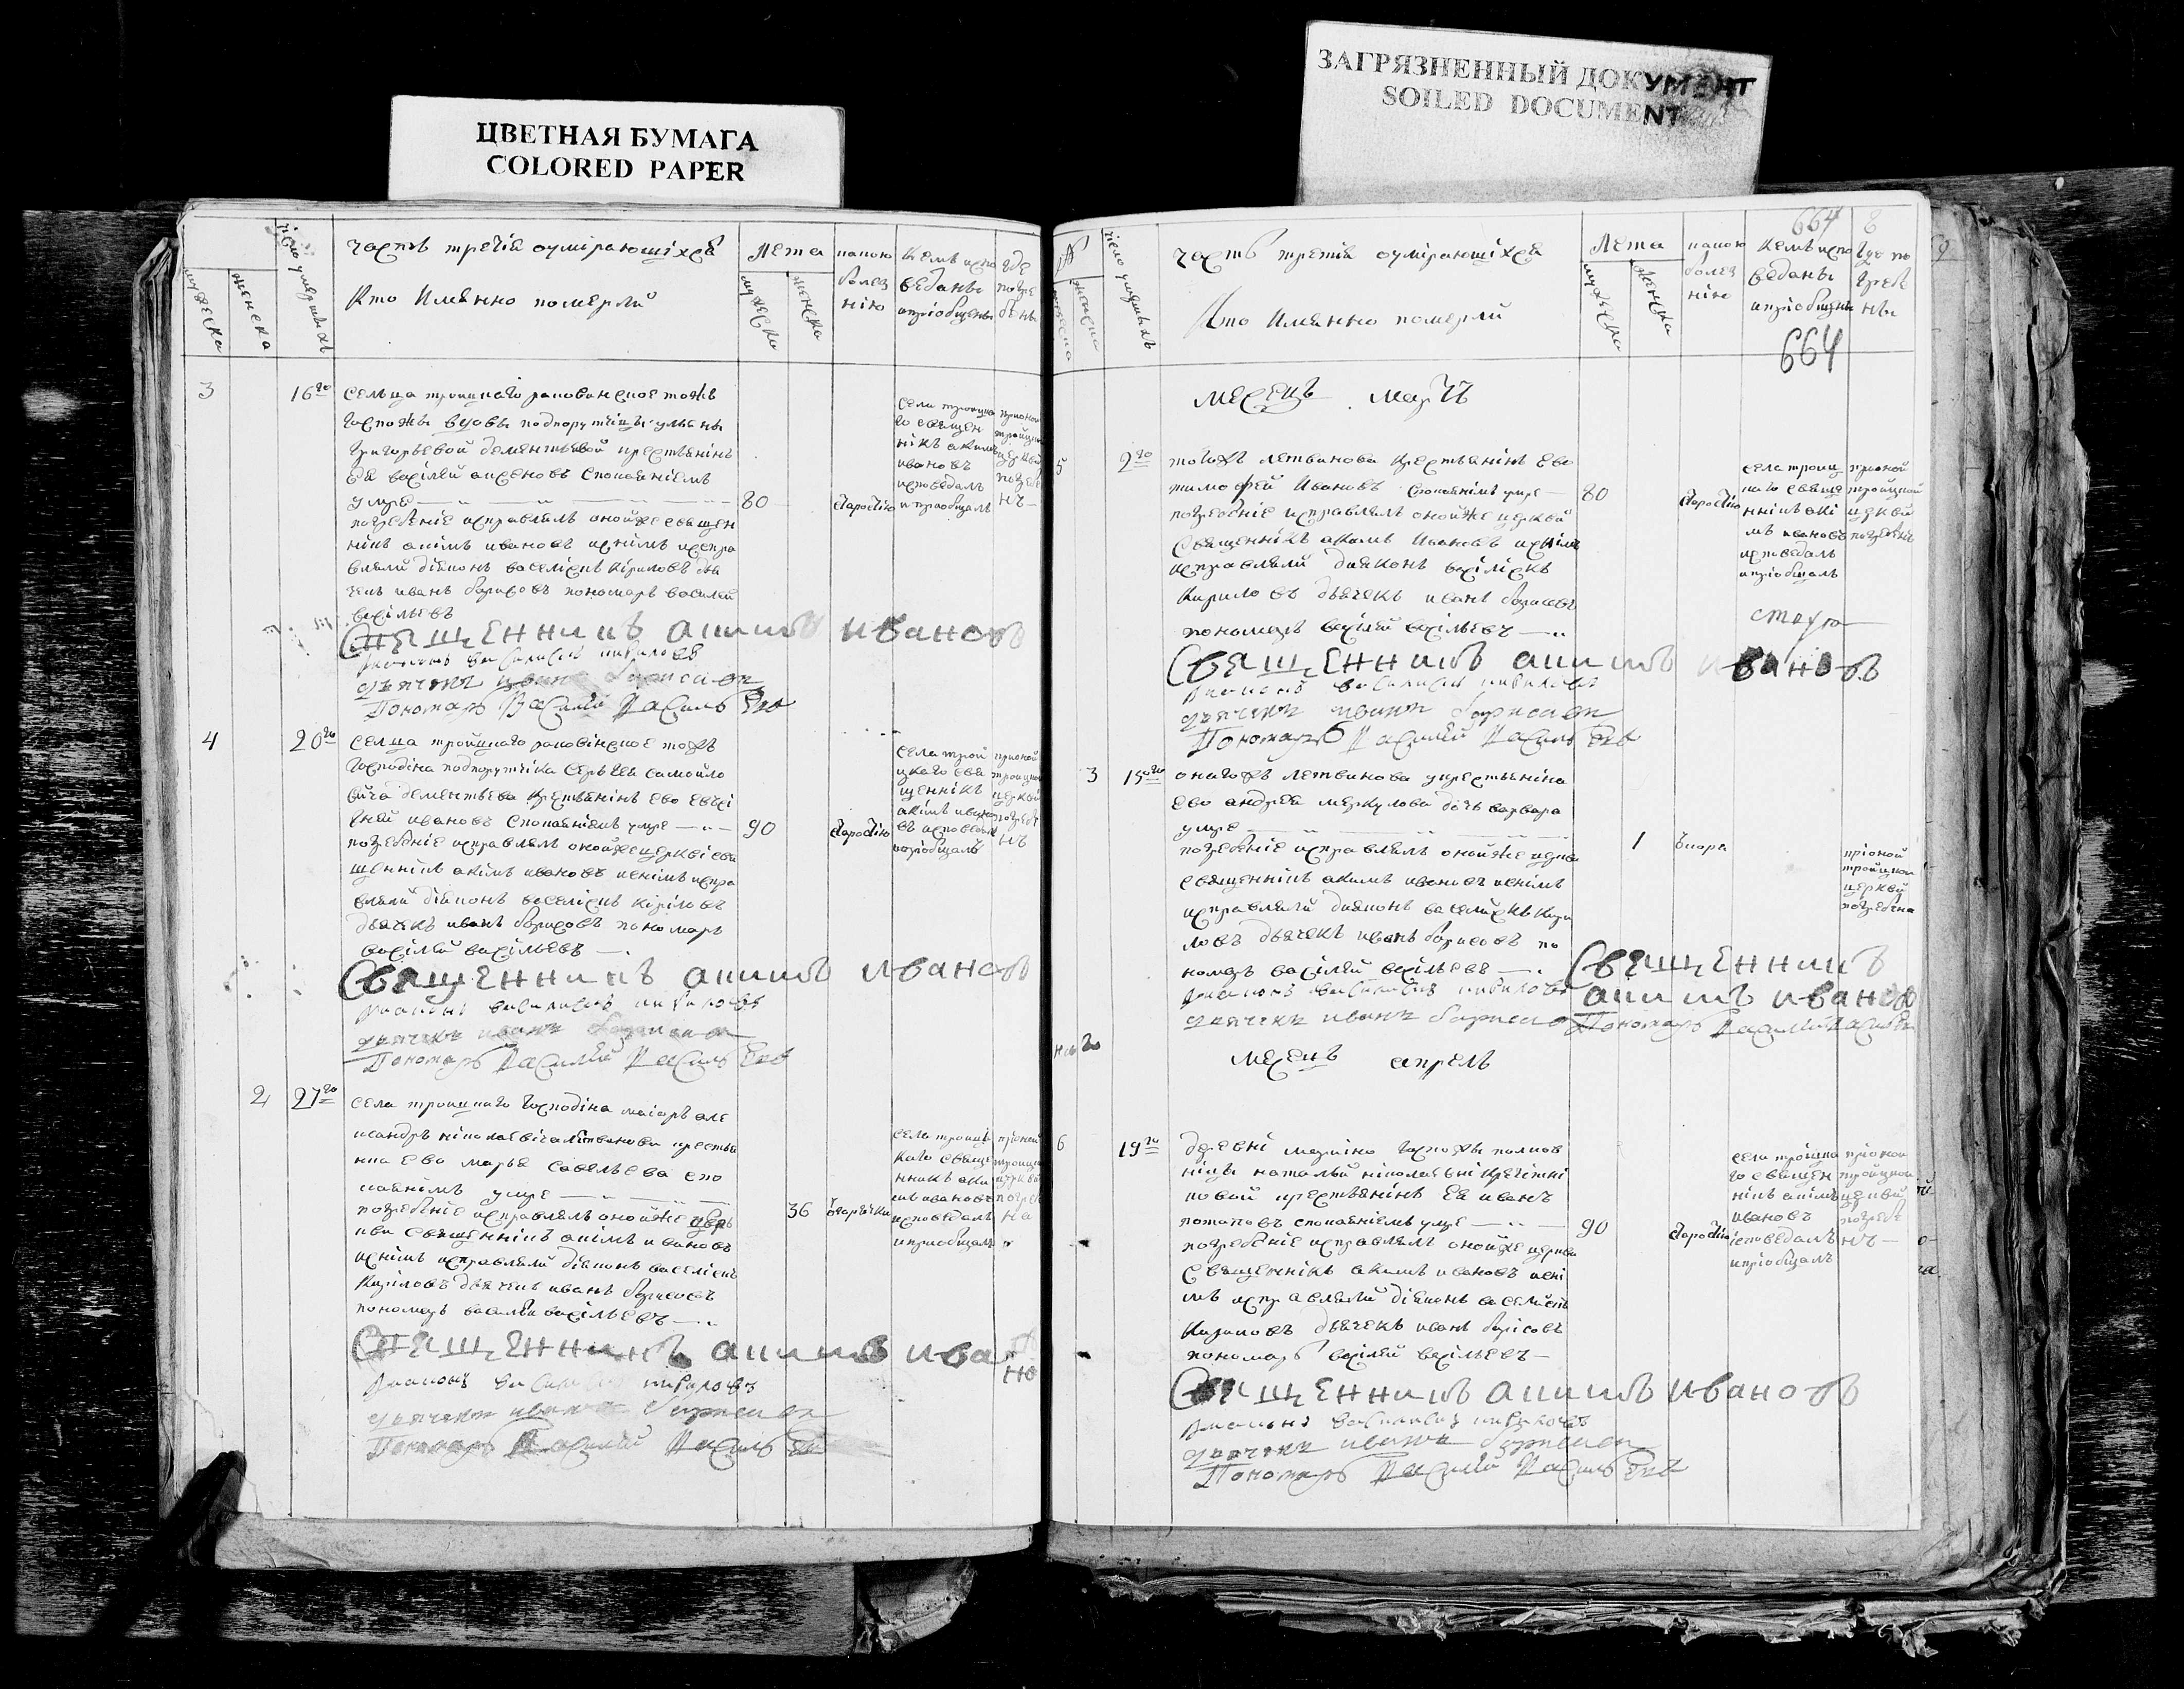 ЦВЕТНАЯ БУМАГА
COLORED PAPER
ЗАГРЯЗНЕННЫЙ ДОКУМЕНТ
SOILED DOCUMENT
часть третія оумирающіхся
Кто Имянно померли
Лета
мужеска
женска
какою
болез
нію
Кемъ испо
веданы
ипріобщены
где
погре
бены
3
16го
сельца троицкаго
госпожи вдовы подпорутчицы ульяны
Григорьевой дементьевой крестьянинъ
Ея василей спокаяніемъ
умре
80
старостію
погребеніе исправлялъ онойже священ
нікъ акимъ ивановъ иснімъ испра
вляли діяконъ васеліскъ Кириловъ дья
чекъ иванъ борисовъ пономарь василей
васільевъ
села троицка
го священ
нікъ акимъ
ивановъ
исповедалъ
и приобщалъ
прионой
троицкой
церкви
погребе
нъ
Священникъ акимъ ивановъ
диаконъ василискъ кириловъ
дьячекъ иванъ борисовъ
Пономарь Василей Васильевъ
4
20го
селца тройцкаго
Господіна подпорутчіка Сергея самойло
віча дементьева крестьянінъ ево евсі
гней ивановъ спокаяніемъ умре
90
старостію
погребеніе исправлялъ онойже церкві свя
щеннікъ акімъ ивановъ иснімъ испра
вляли діяконъ васеліскъ Кіріловъ
дьячекъ иванъ борисовъ пономарь
васілей васільевъ
села трой
цкаго свя
щеннікъ
акімъ ивано
въ исповедалъ
ипріобщалъ
прионой
троицкой
церкви
погребе
нъ
Священникъ акимъ ивановъ
диаконъ василискъ кириловъ
дьячекъ иванъ борисовъ
Пономарь Василей Васильевъ
2
27го
села троицкаго Господіна маіоръ але
ксандръ ніколаевіча літвинова крестья
нка ево марья савельева спо
каянімъ умре
36
горячки
погребеніе исправлялъ онойже цер
кви Священнікъ акімъ ивановъ
иснімъ исправляли діяконъ васеліскъ
Киріловъ дьячекъ иванъ борисовъ
пономарь василей васільевъ
села троиц
каго свящ
нникъ аки
мъ ивановъ
исповедалъ
иприобщалъ
пріоной
троицкой
церкви
погребе
на
Священникъ акимъ ивановъ
диаконъ василискъ кириловъ
дьячекъ иванъ борисовъ
Пономарь Василей Васильевъ
664
8
часть третія оумирающіхся
Кто Имянно померли
Лета
мужеска
женска
какою
болез
нію
Кемъ испо
веданы
ипріобщены
где по
гребе
ны
664
месецъ мартъ
5
2го
тогожъ летвинова крестьянінъ ево
тимофей Ивановъ спокаянімъ умре
80
старостію
погребеніе исправлялъ онойже церкви
Священнікъ акимъ Ивановъ иснімъ
исправляли дияконъ васіліскъ
Кириловъ дьячекъ иванъ борисовъ
пономарь васілей васільевъ
села троиц
каго свяще
ннікъ акі
мъ ивановъ
исповедалъ
ипріобщалъ
прионой
тройцкой
церкви
погребенъ
Священникъ акимъ ивановъ
диаконъ василискъ кириловъ
дьячекъ иванъ борисовъ
Пономарь Василей Васильевъ
3
15го
онагожъ летвинова укрестьяніна
ево андрея меркулова дочь варвара
умре
1
погребеніе исправлялъ онойже церкви
священнікъ акимъ ивановъ иснімъ
исправляли дияконъ василискъ Кири
ловъ дьячекъ иванъ борисовъ по
номарь васілей васільевъ
пріоной
тройцкой
церкви
погребена
Священникъ
акимъ ивановъ
диаконъ василискъ кириловъ
дьячекъ иванъ борисовъ Пономарь Василей Васильевъ
месецъ апрель
6
19го
деревні марьіно Госпожи полков
ніцы натальи ніколаевні
новой крестьянінъ Ея иванъ
потаповъ спокаяніемъ умре
90
старостію
погребеніе исправлялъ онойже церкви
Священнікъ акимъ ивановъ исні
мъ исправляли діяконъ васеліскъ
Кириловъ дьячекъ иванъ борісовъ
пономарь васілей васільевъ
села тройцка
го священ
нікъ акімъ
ивановъ
ісповедалъ
ипріобщалъ
пріоной
тройцкой
церкви
погребе
нъ
Священникъ акимъ ивановъ
диаконъ василискъ кириловъ
дьячекъ иванъ борисовъ
Пономарь Василей Васильевъ